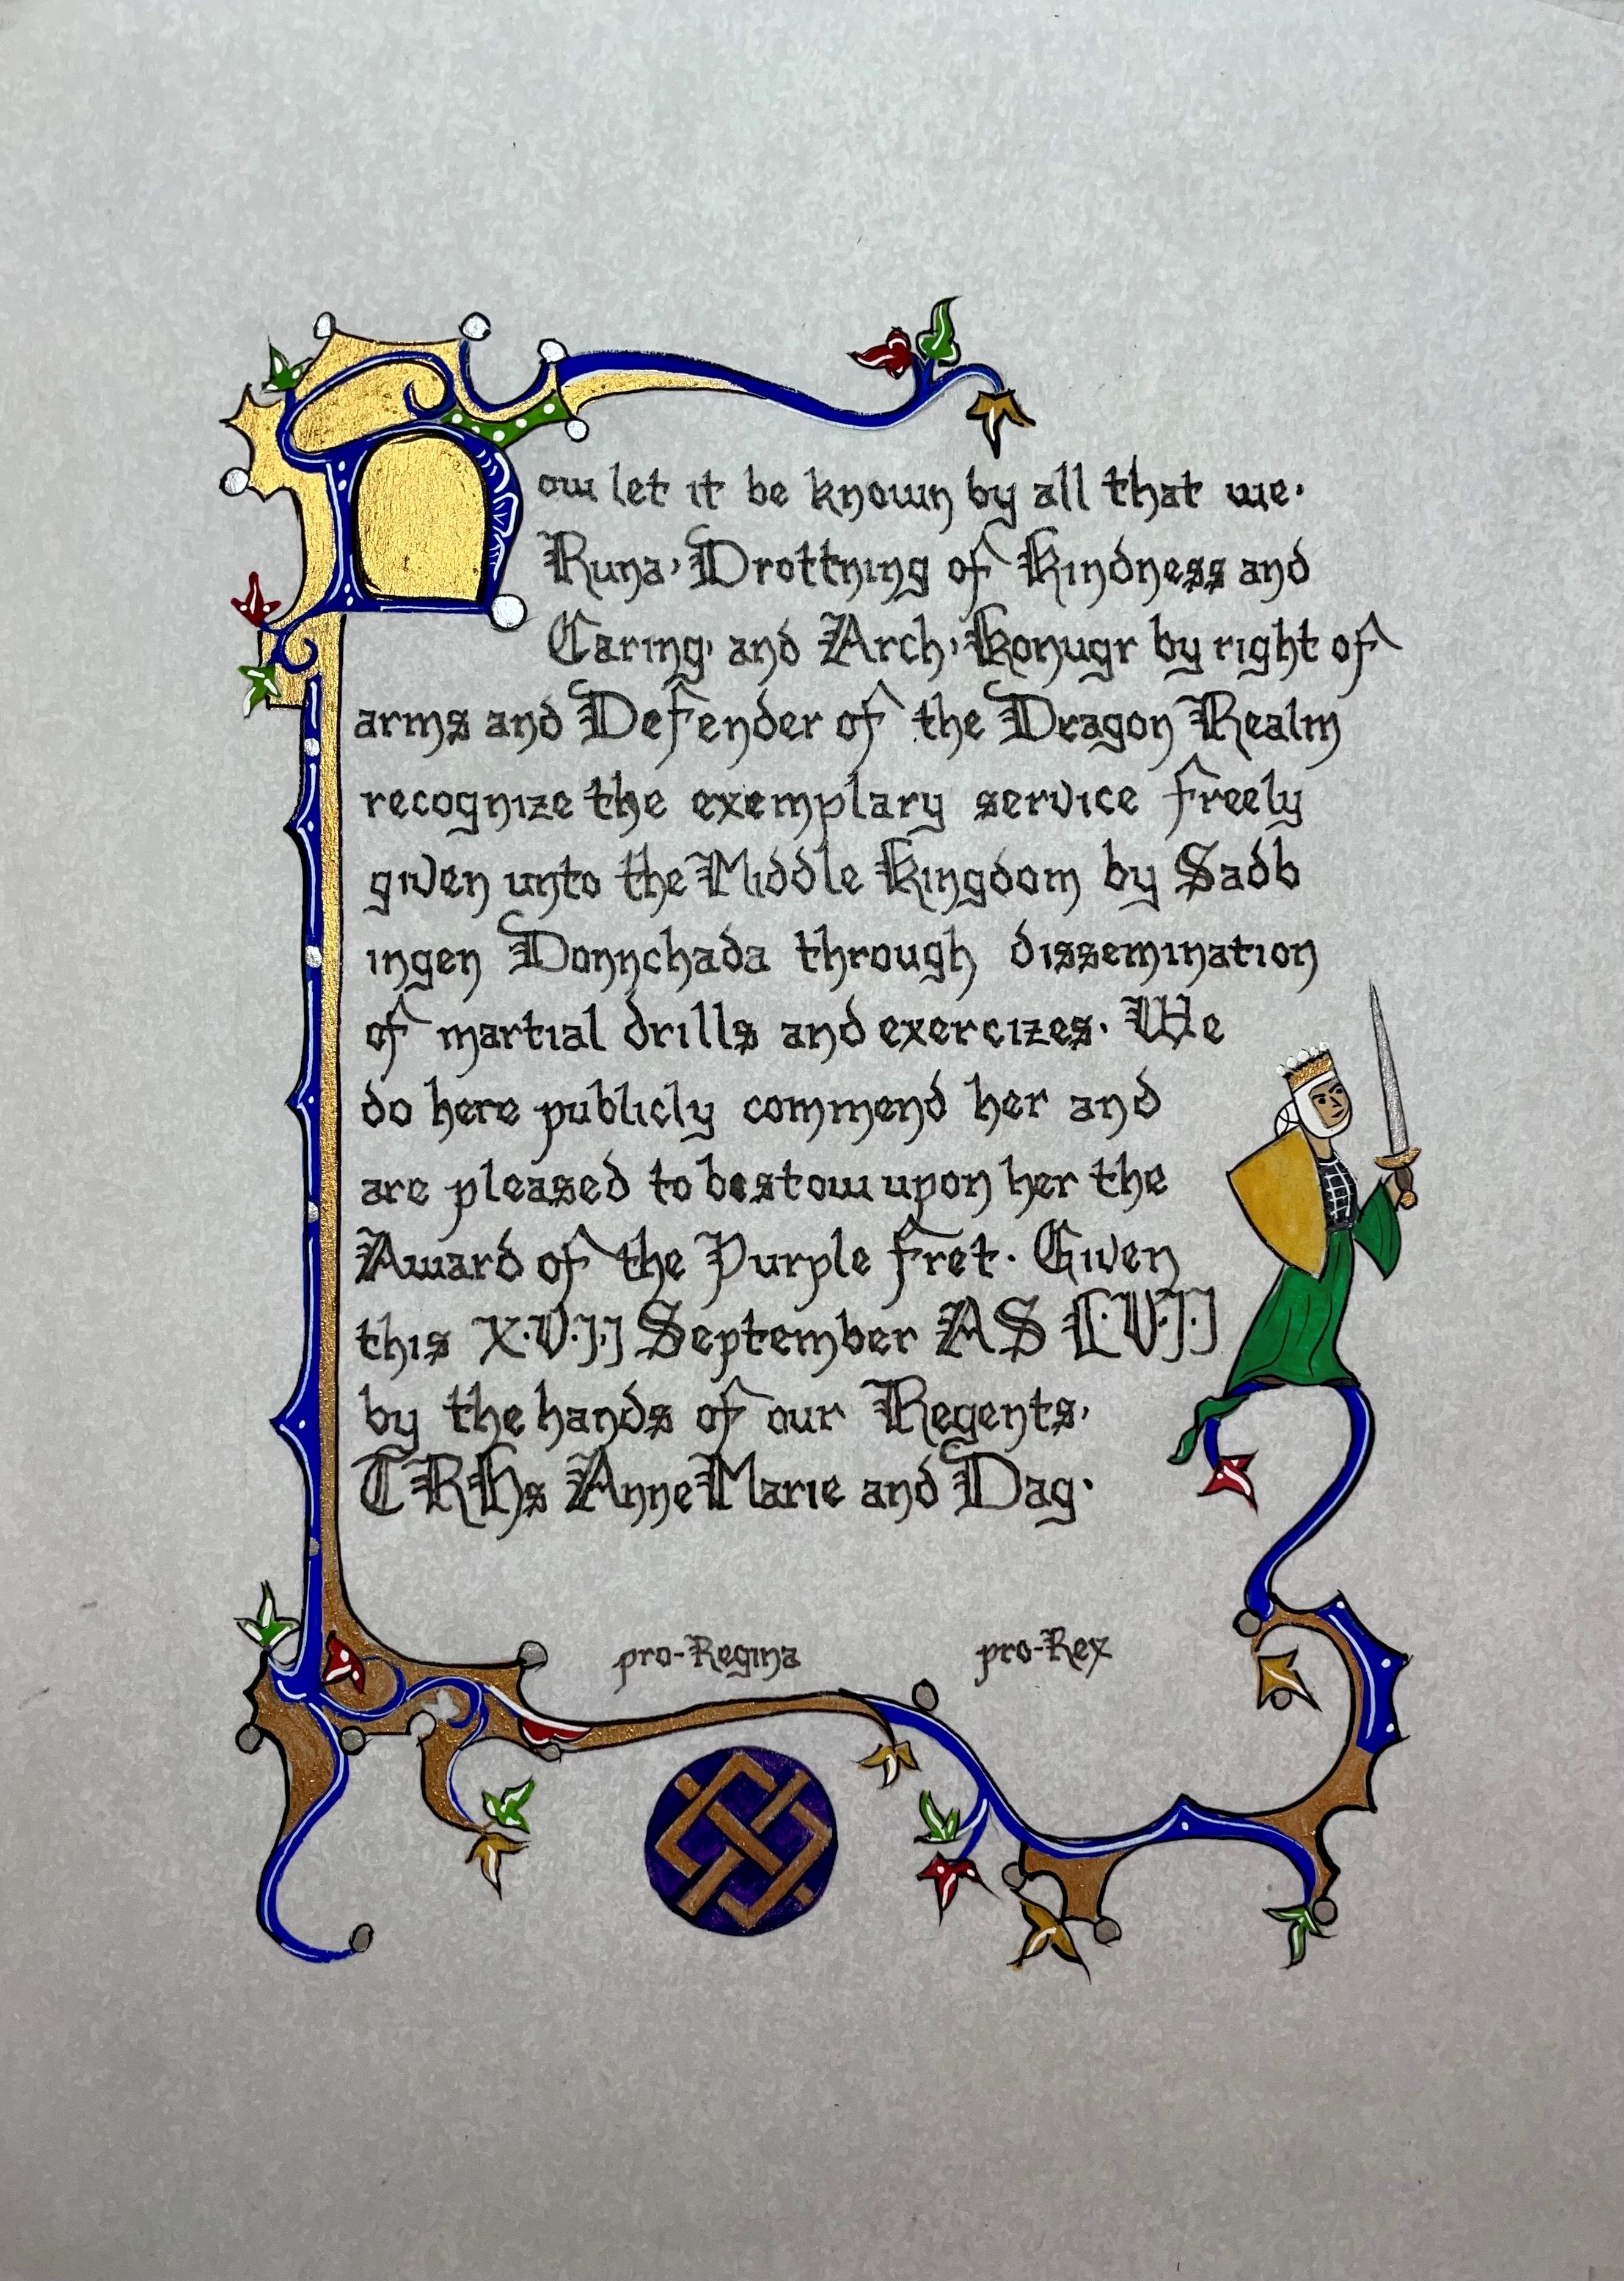 Now let it be known by all that we.
Runa, Drottning of Kindness and
Caring, and Arch, Konugr by right of
arms and Defender of the Dragon Realm
recognize the exemplary service freely
given unto the Middle Kingdom by Sadb
ingen Donnchada through dissemination
of martial drills and exercizes. We
do here publicly commend her and
are pleased to bestow upon her the
Award of the Purple Fret. Given
this X·V·I·I September AS L·V·I·I
by the hands of our Regents,
TRHs AnneMarie and Dag.
pro-Regina pro-Rex